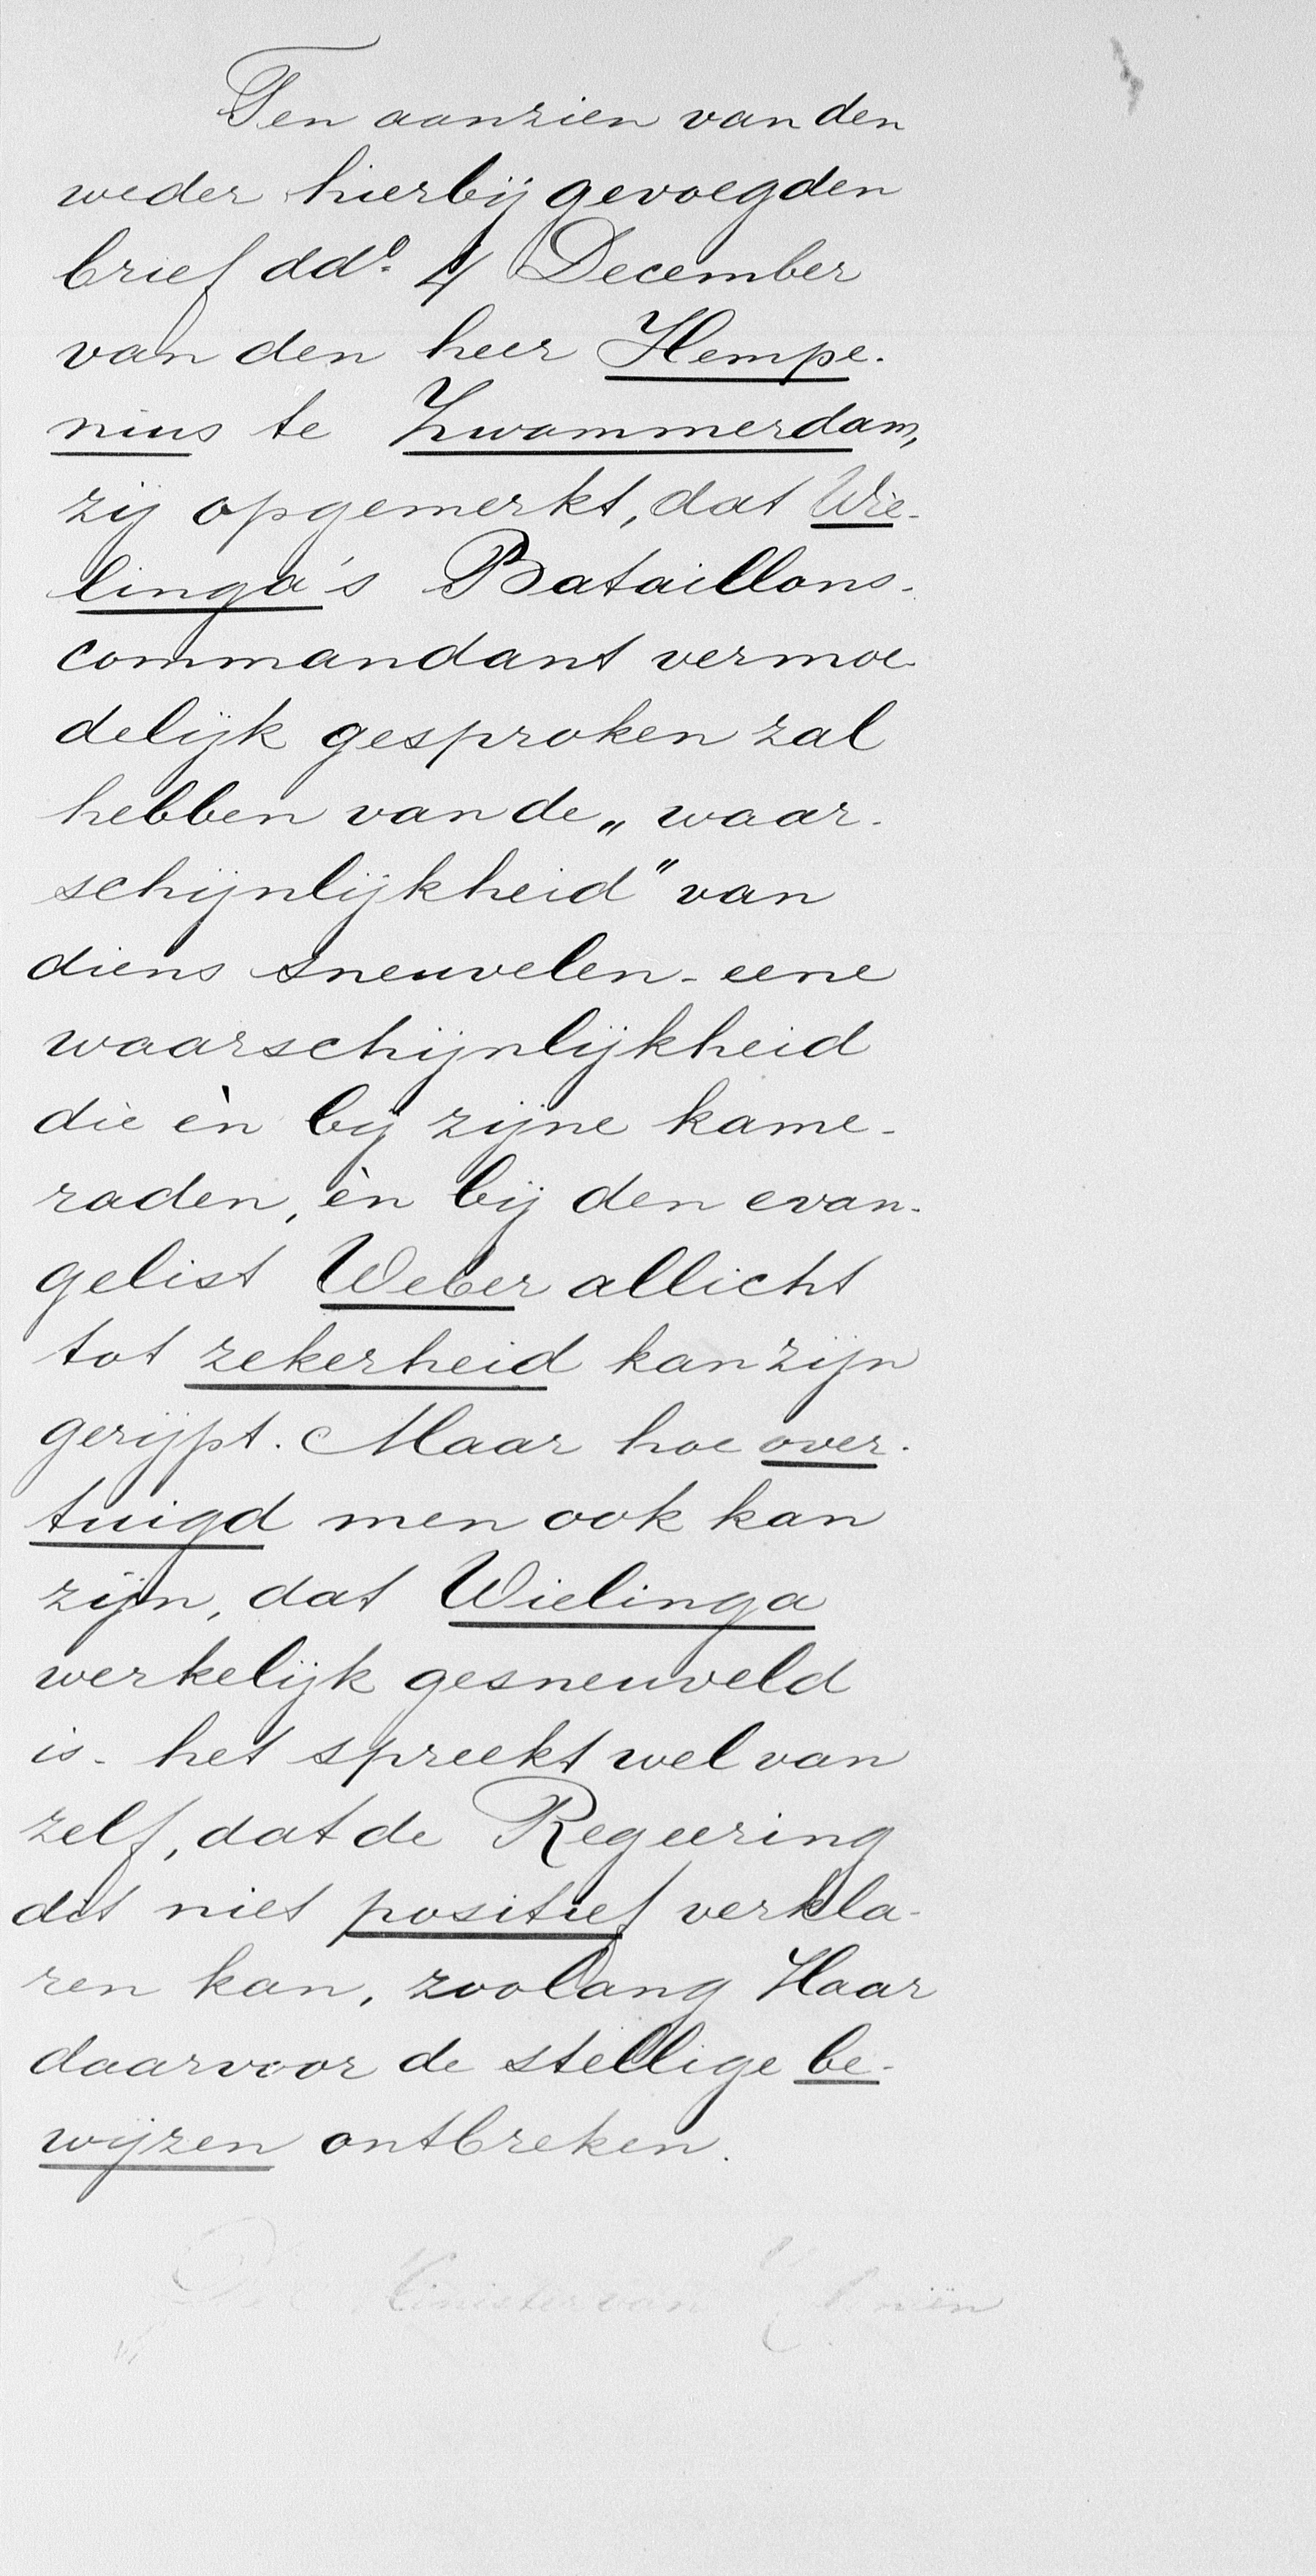 Ten aanzien van den
weder hierbij gevoegden
brief ddo. 4 December
van den heer Hempe-
nius te Zwammerdam,
zij opgemerkt, dat Wie-
linga's Bataillons-
commandant vermoe-
delijk gesproken zal
hebben van de „waar-
schijnlijkheid" van
diens sneuvelen - eene
waarschijnlijkheid
die èn bij zijne kame-
raden, èn bij den evan-
gelist Weber allicht
tot zekerheid kan zijn
gerijpt. Maar hoe over-
tuigd men ook kan
zijn, dat Wielinga
werkelijk gesneuveld
is - het spreekt wel van
zelf, dat de Regeering
dit niet positief verkla-
ren kan, zoolang Haar
daarvoor de stellige be-
wijzen ontbreken.
De Minister van Koloniën